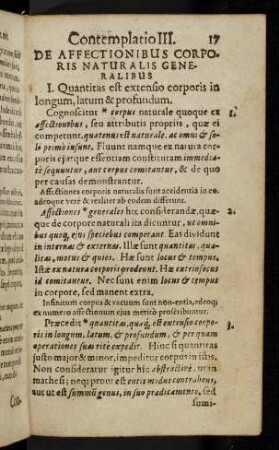 Contemplatio III. 17
DE AFFECTIONIBUS CORPO-
RIS NATURALIS GENE-
RALIBUS
I. Quantitas est extensio corporis in
longum, latum & profundum.
Cognoscitur * corpus naturale quoque ex 1.
affectionibus, seu attributis propriis, quæ ei
competunt, quatenus est naturale, ac omni & so-
lo primò insunt. Fluunt namque ex natura cor-
poris ejusque essentiam constitutam immedia-
tè sequuntur, aut corpus comitantur, & de quo
per causas demonstrantur.
Affectiones corporis naturalis sunt accidentia in eo-
adeoque verè & realiter ab eodem differunt.
Affectiones * generales hic considerandæ, quæ- 2.
que de corpore naturali ita dicuntur, ut omni-
bus quoq; ejus speciebus competant. Eas dividunt
in internas & externas. Illæ sunt quantitas, qua-
litas, motus & quies. Hæ sunt locus & tempus,
Istæ ex natura corporis prodeunt. Hæ extrinsecus
id comitantur. Nec sunt enim locus & tempus
in corpore, sed manent extra.
Infinitum corpus & vacuum sunt non-entia, adeoq;
ex numero affectionum ejus meritò proscribuntur.
Præcedit * quantitas, quæq; est extensio corpo- 3.
ris in longum, latum, & profundum, & per quam
operationes suas ritè expedit. Hinc si quantitas
justo major & minor, impeditur corpus in istis.
Non consideratur igitur hîc abstractivè, ut in
mathesi; neq; prout est entis modus contrahens,
aut ut est summũ genus, in suo prædicamento, sed
sumi-